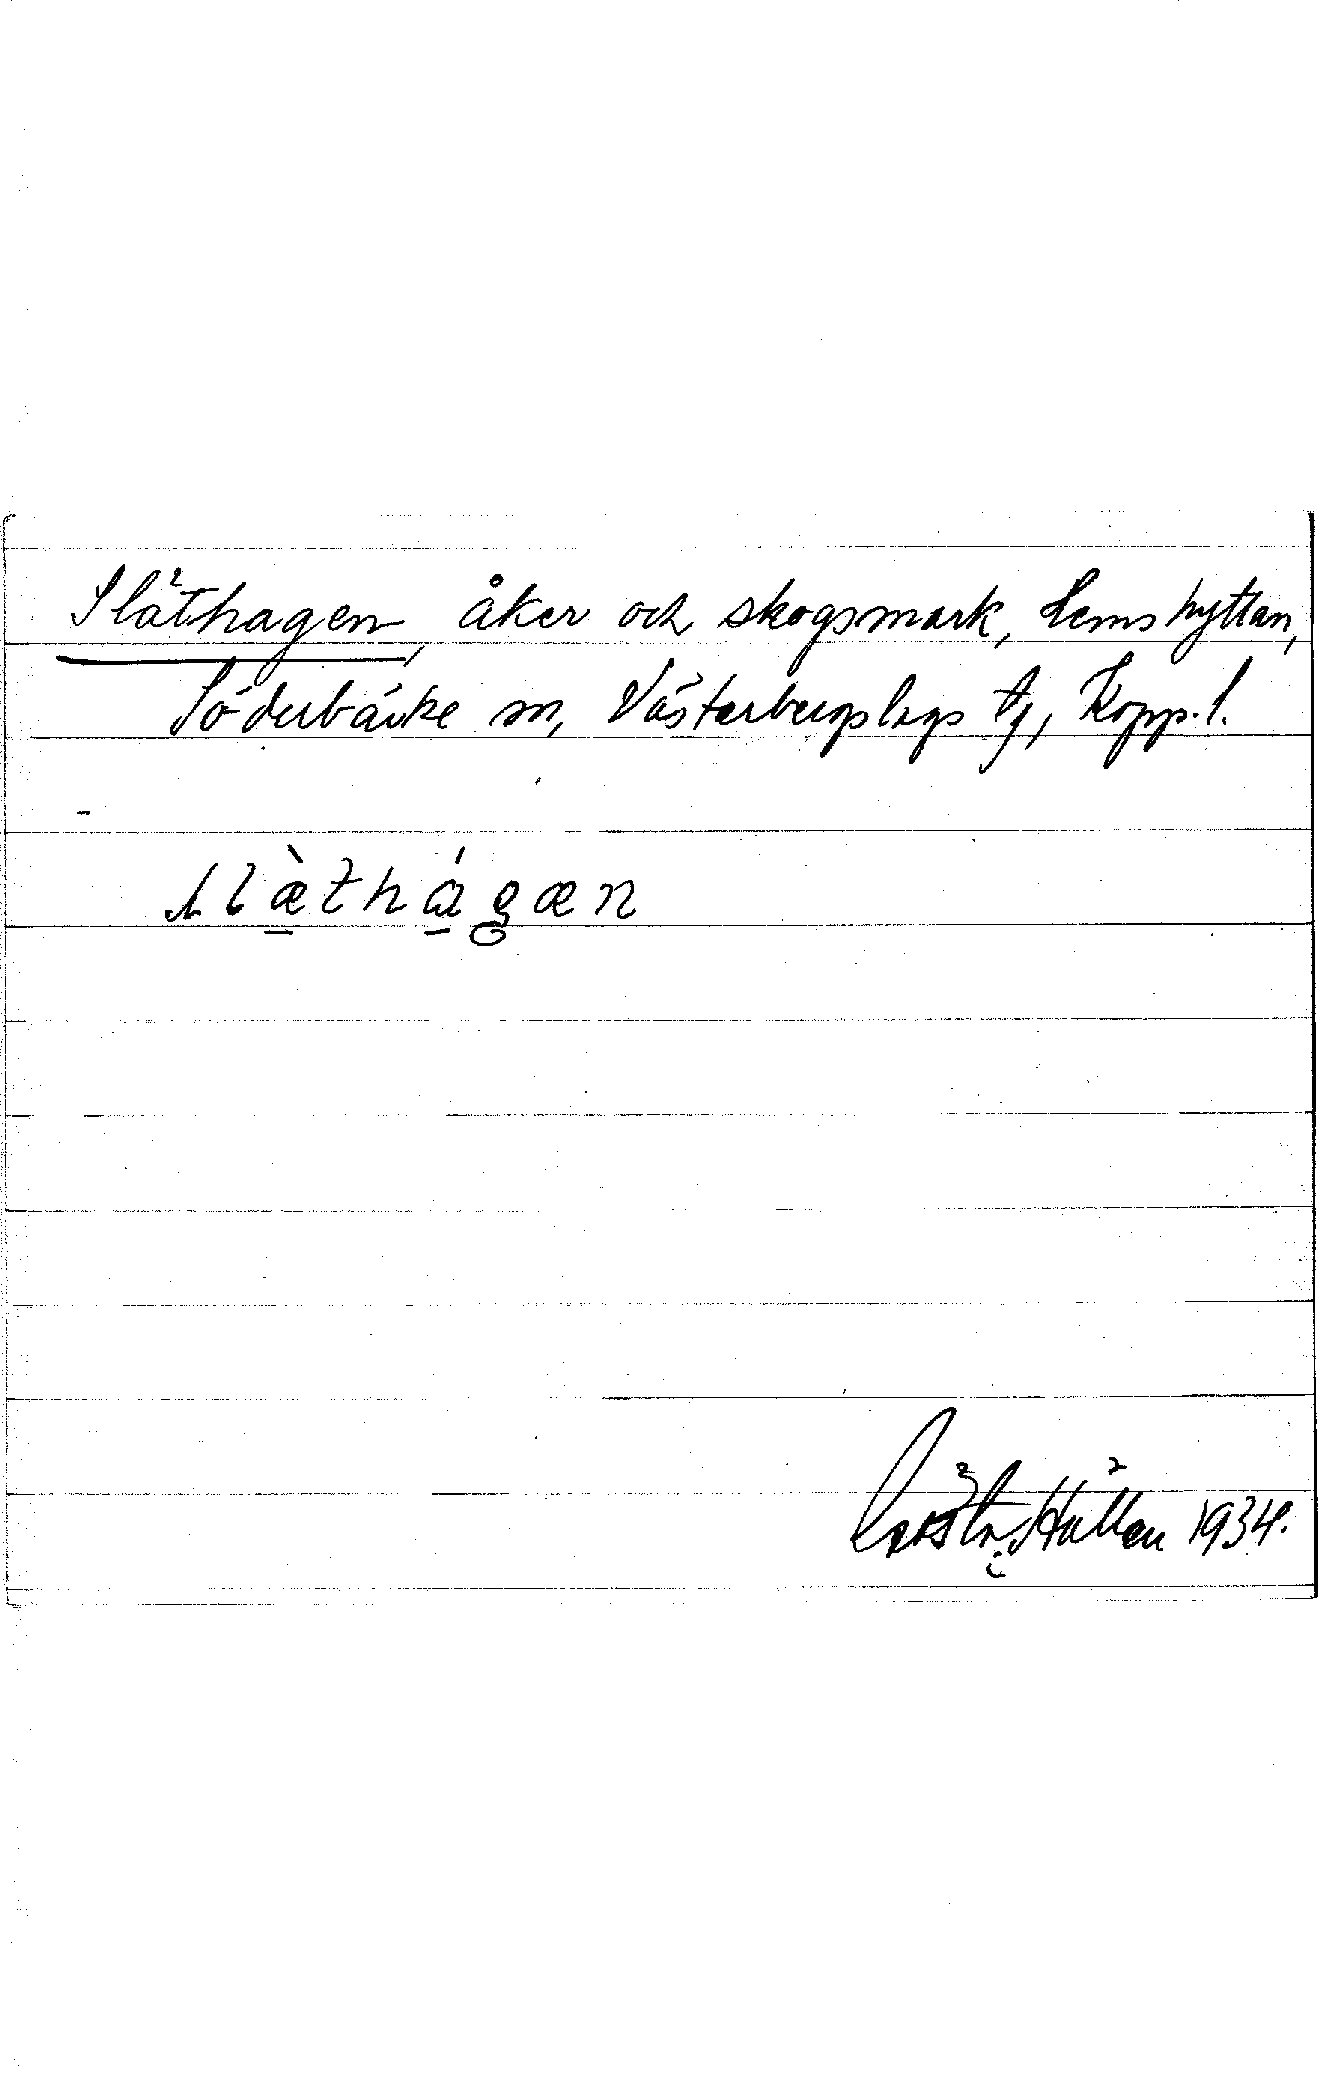 Släthagen, åker och skogsmark, Lemshyttan,
Söderbärke sn, Västerbergslags tg, Kopp. l.
slæ̀thágæn
Gösta Hallén 1934.